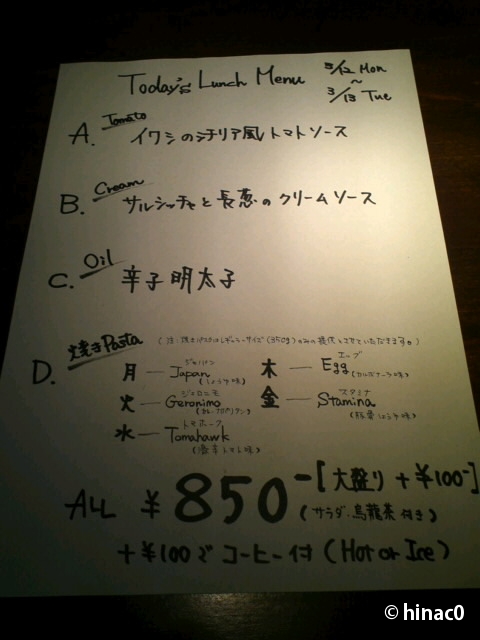 Today's Lunch Menu 3/12 Mon
~
3/13 Tue
Tomato
A. イワシのシチリア風トマトソース
Cream
B. サルシッチャと長葱のクリームソース
Oil
C. 辛子明太子
D. 焼きPasta (注:焼きパスタはレギュラーサイズ(350g)のみの提供とさせていただきます。)
ジャパン
月 — Japan (しょうゆ味)
エッグ
木 — Egg (カルボナーラ味)
ジェロニモ
火 — Geronimo (カレーナポリタン)
スタミナ
金 — Stamina (豚菜しょうゆ味)
トマホーク
水 — Tomahawk (激辛トマト味)
ALL ¥850- [大盛り+¥100-]
(サラダ・烏龍茶付き)
+¥100で コーヒー付 (Hot or Ice)
© hinac0